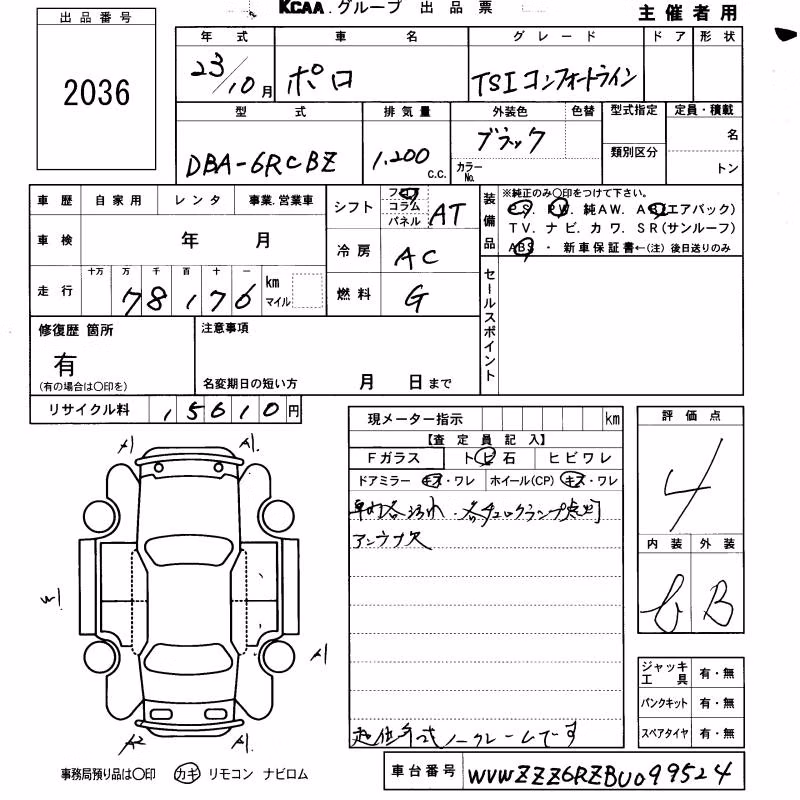 KCAA.グループ 出品票
主催者用
出品番号
2036
年式 車名 グレード ドア 形状
23/10月 ポロ TSIコンフォートライン
型式 排気量 外装色 色替 型式指定 定員・積載
DBA-6RCBZ 1,200 c.c. ブラック カラーNo. 類別区分 名
トン
車歴 自家用 レンタ 事業.営業車
車検 年 月
走行 十万 万 千 百 十 一
78,176 km マイル
シフト フロア コラム パネル AT
冷房 AC
燃料 G
装備品
※純正のみ〇印をつけて下さい。
P.S. P.W. 純AW. AB(エアバック)
T V. ナビ. カワ. SR(サンルーフ)
ABS ・ 新車保証書←(注) 後日送りのみ
セールスポイント
修復歴 箇所
有
(有の場合は〇印を)
注意事項
名変期日の短い方 月 日まで
リサイクル料 15610円
現メーター指示 km
【査定員記入】
Fガラス トビ石 ヒビワレ
ドアミラー キズ・ワレ ホイール(CP) キズ・ワレ
アンテナ欠
ノークレームです
評価点
4
内装 外装
B
A1 A1.
W1
A1
A2 A1
ジャッキ工具 有・無
パンクキット 有・無
スペアタイヤ 有・無
事務局預り品は〇印 カギ リモコン ナビロム
車台番号 WVWZZZ6RZBU099524